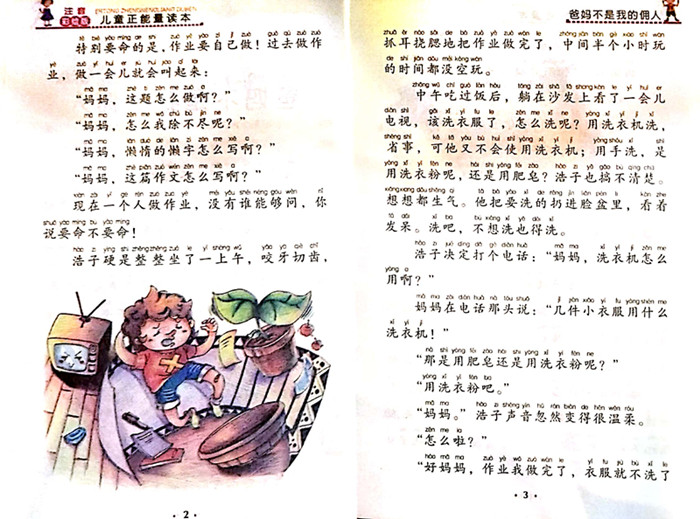 注音
彩绘版
儿童正能量读本
特别要命的是,作业要自己做!过去做作
业,做一会儿就会叫起来:
“妈妈,这题怎么做啊?”
“妈妈,怎么我除不尽呢?”
“妈妈,懒惰的懒字怎么写啊?”
“妈妈,这篇作文怎么写啊?”
现在一个人做作业,没有谁能够问,你
说要命不要命!
浩子硬是整整坐了一上午,咬牙切齿,
·2·
爸妈不是我的佣人
抓耳挠腮地把作业做完了,中间半个小时玩
的时间都没空玩。
中午吃过饭后,躺在沙发上看了一会儿
电视,该洗衣服了,怎么洗呢?用洗衣机洗,
省事,可他又不会使用洗衣机;用手洗,是
用洗衣粉呢,还是用肥皂?浩子也搞不清楚。
想想都生气。他把要洗的扔进脸盆里,看着
发呆。洗吧,不想洗也得洗。
浩子决定打个电话:“妈妈,洗衣机怎么
用啊?”
妈妈在电话那头说:“几件小衣服用什么
洗衣机!”
“那是用肥皂还是用洗衣粉呢?”
“用洗衣粉吧。”
“妈妈。”浩子声音忽然变得很温柔。
“怎么啦?”
“好妈妈,作业我做完了,衣服就不洗了
·3·